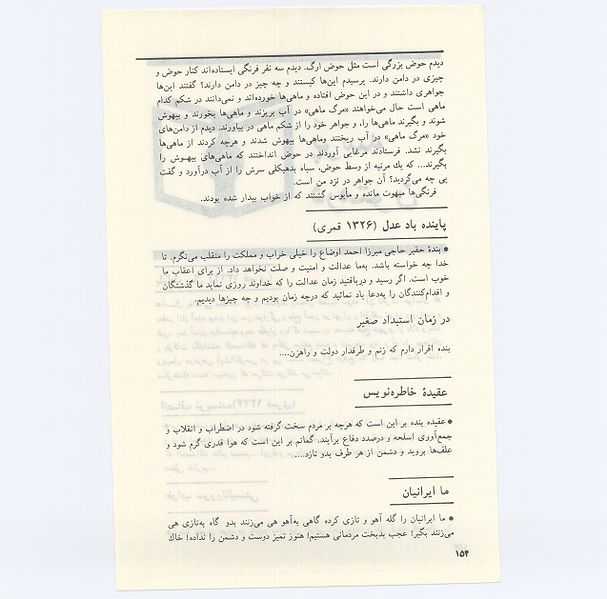 دیدم حوض بزرگی است مثل حوض ارگ. دیدم سه نفر فرنگی ایستاده‌اند کنار حوض و
چیزی در دامن دارند. پرسیدم این‌ها کیستند و چه چیز در دامن دارند؟ گفتند این‌ها
جواهری داشتند و در این حوض افتاده و ماهی‌ها خورده‌اند و نمی‌دانند در شکم کدام
ماهی است حال می‌خواهند «مرگ ماهی» در آب بریزند و ماهی‌ها بخورند و بیهوش
شوند و بگیرند ماهی‌ها را، و جواهر خود را از شکم ماهی در بیاورند. دیدم از دامن‌های
خود «مرگ ماهی» در آب ریختند وماهی‌ها بیهوش شدند و هرچه کردند از ماهی‌ها
بگیرند نشد. فرستادند مرغابی آوردند در حوض انداختند که ماهی‌های بیهوش را
بگیرند... که یك مرتبه از وسط حوض، سیاه بدهیکلی سرش را از آب درآورد و گفت
پی چه می‌گردید؟ آن جواهر در نزد من است.
فرنگی‌ها مبهوت مانده و مأیوس گشتند که از خواب بیدار شده بودند.
پاینده باد عدل (۱۳۲۶ قمری)
● بندهٔ حقیر حاجی میرزا احمد اوضاع را خیلی خراب و مملکت را منقلب می‌نگرم. تا
خدا چه خواسته باشد. به‌ما عدالت و امنیت و صلت نخواهد داد. از برای اعقاب ما
خوب است. اگر رسید و دریافتید زمان عدالت را که خداوند روزی نماید ما گذشتگان
و اقدام‌کنندگان را به‌دعا یاد نمائید که درچه زمان بودیم و چه چیزها دیدیم.
در زمان استبداد صغیر
بنده اقرار دارم که زنم و طرفدار دولت و راهزن....
عقیدهٔ خاطره‌نویس
● عقیده بنده بر این است که هرچه بر مردم سخت گرفته شود در اضطراب و انقلاب و
جمع‌آوری اسلحه و درصدد دفاع برآیند. گمانم بر این است که هوا قدری گرم شود و
علف‌ها بروید و دشمن از هر طرف بدو تازد....
ما ایرانیان
● ما ایرانیان را گله آهو و تازی کرده گاهی به‌آهو هی می‌زنند بدو گاه به‌تازی هی
می‌زنند بگیر! عجب بدبخت مردمانی هستیم! هنوز تمیز دوست و دشمن را نداده! خاك
۱۵۴